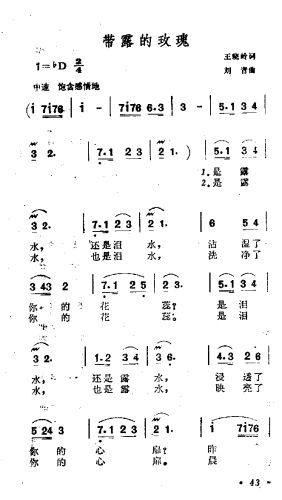 带露的玫瑰
1=♭D 2/4
王晓岭词
刘青曲
中速 饱含感情地
(i 7i76 | i - | 7i76 6·3 | 3 - | 5·1 34 |
3 2· | 7·1 23 | 2 1·) | 5·1 34 |
1.是露
2.是露
3 2· | 7·1 23 | 2 1· | 6 54 |
水, 还是泪 水, 沾湿了
水, 也是泪 水, 洗净了
343 2 | 7 25 | 5 - | 5·1 34 |
你的 花 蕊? 是泪
你的 花 蕊。 是泪
3 2· | 1·2 34 | 3 2· | 4·3 26 |
水, 还是露 水, 浸透了
水, 也是露 水, 映亮了
5 243 | 7·1 23 | 2 1· | i 7i76 |
你的 心 扉? 昨
你的 心 扉。 晨
· 43 ·